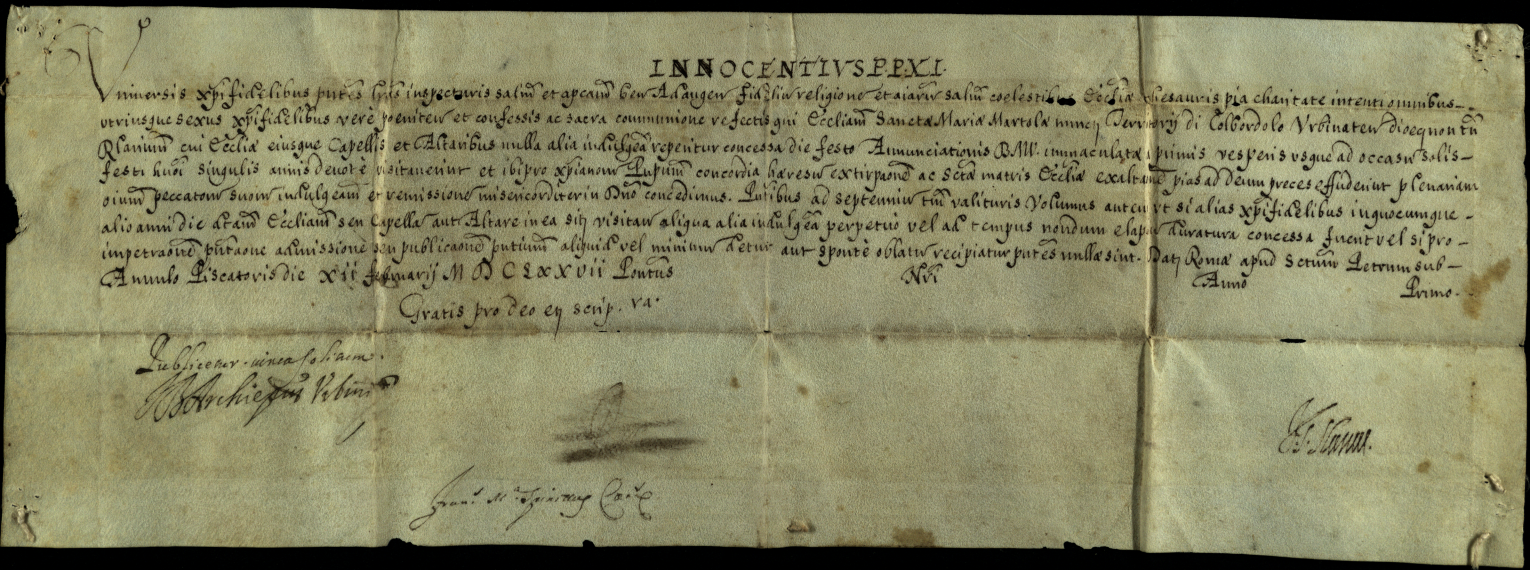 INNOCENTIVS P.P.XI.
Vniversis xpifidelibus pntes lras inspecturis salm et apcam ben Ad augen fidelium religione et aiarum salm coelestibus Eccliæ thesauris pia charitate intenti omnibus
vtriusque sexus xpifidelibus verè poeniten et confessis ac sacra communione refectis qui Eccliam Sanctæ Mariæ Martolæ nuncp Territorij di Colbordolo Vrbinaten dioec non tn
Rlarium cui Eccliæ eiusque Capellis et Altaribus nulla alia indulgea reperitur concessa die festo Annunciationis B.M.V. immaculatæ a primis vesperis vsque ad occasu solis
festi huoi singulis annis devotè visitauerint et ibi pro xpianorum Pnpum concordia hæresu extirpaone ac sctæ matris Eccliæ exaltane pias ad deum preces effuderint plenariam
oium peccatoru suoru indulgeam et remissione misericorditer in Dno concedimus. Pntibus ad septenniu tm valituris Volumus autem vt si alias xpifidelibus in quocumque
alio anni die dtam Eccliam seu Capella aut Altare in ea sitj visitan aliqua alia indulgea perpetuò vel ad tempus nondum elapsu duratura concessa fuerit vel si pro
impetraone pntaone admissione seu publicaone pntium aliquid vel minimu detur aut spontè oblatu recipiatur pntes nullæ sint. Datj Romæ apud Sctum Petrum sub
Annulo Piscatoris die XII februarij M D C LXXVII Pontus Nri Anno Primo.
Gratis pro deo eij scrip.ra.
Publicetur
Archiepus Vrbini